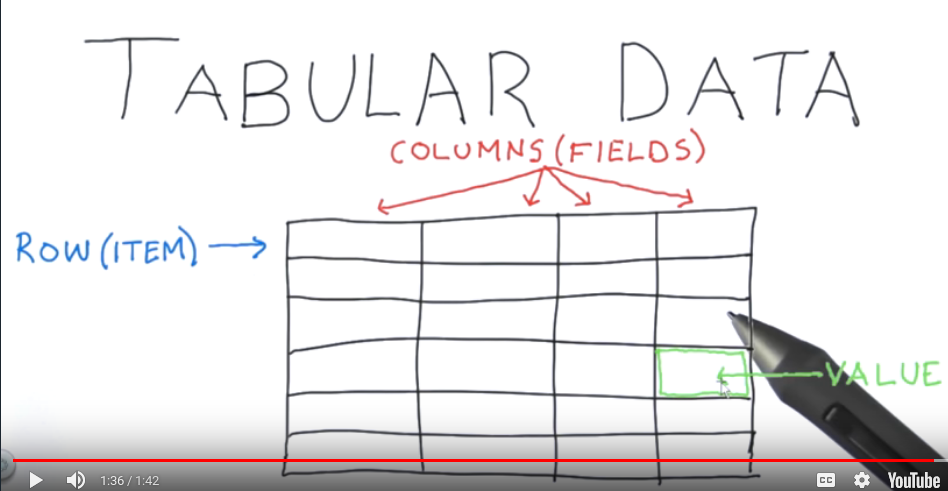 TABULAR DATA
COLUMNS (FIELDS)
ROW (ITEM)
VALUE
1:36 / 1:42
CC
YouTube